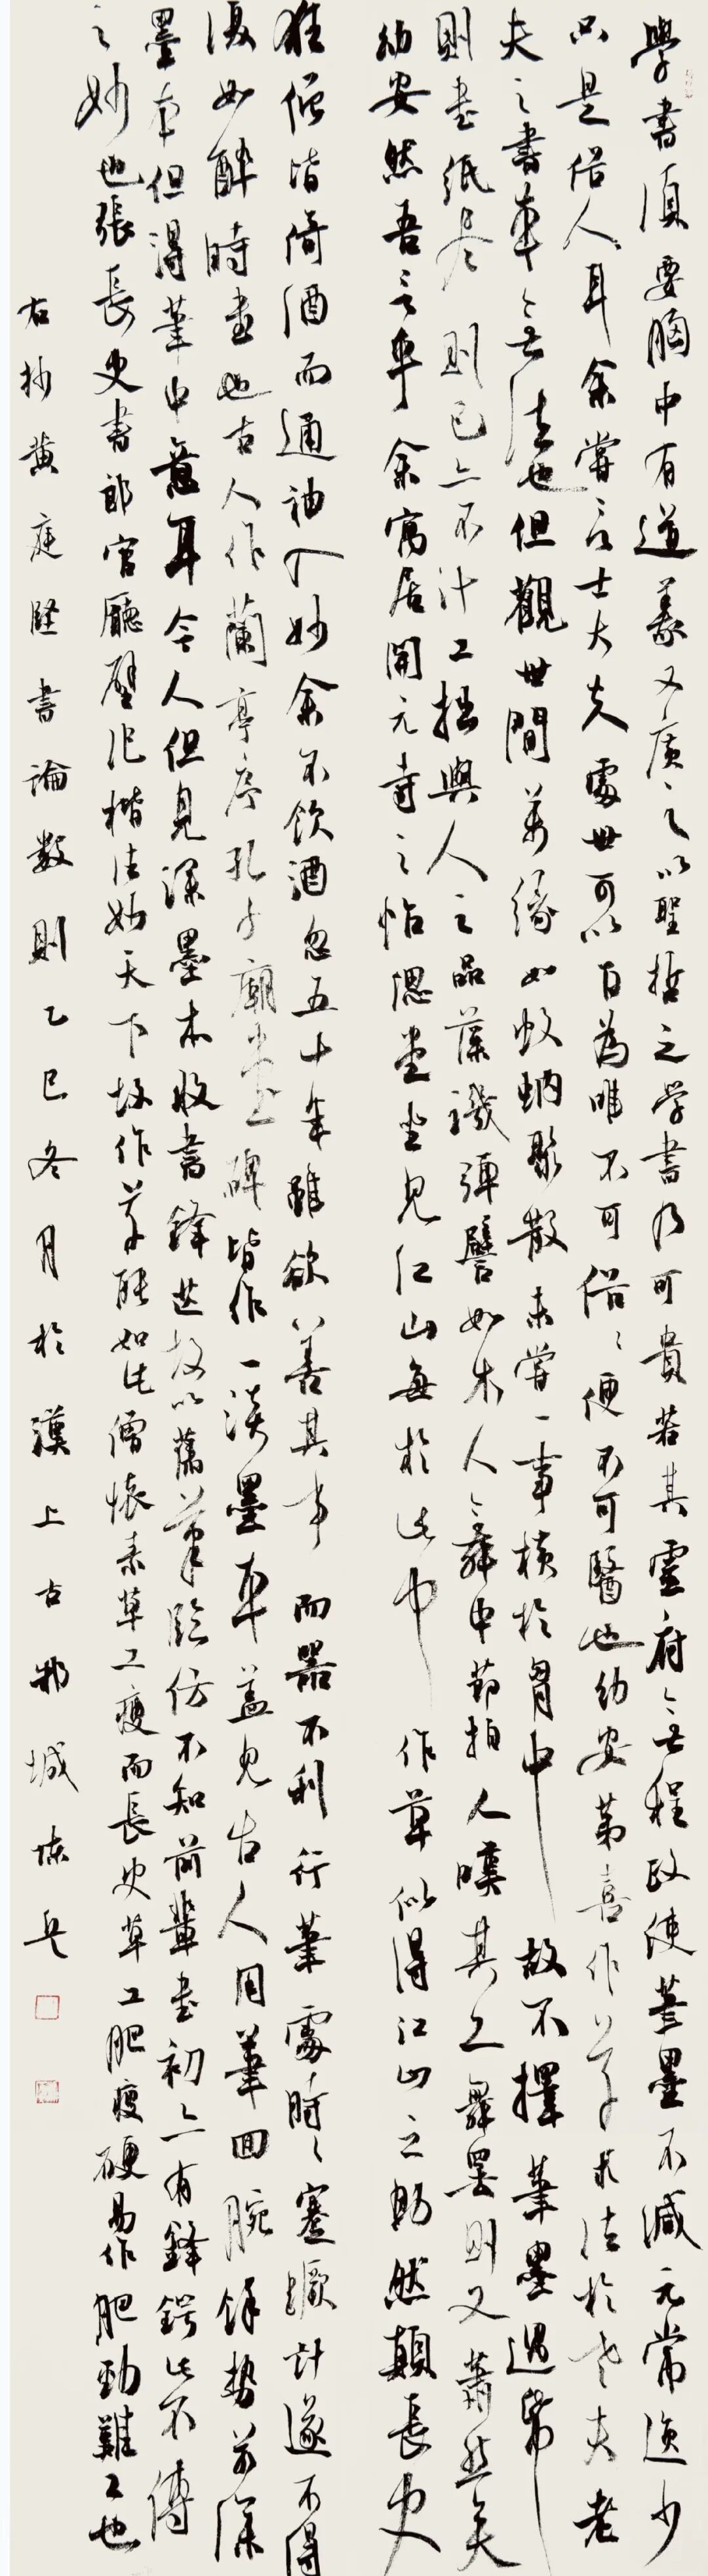 學書須要胸中有道義又廣之以聖哲之学書乃可貴若其靈府〻無程政使筆墨不減元常逸少
只是俗人耳余嘗言士大夫處世可以百為唯不可俗〻便不可醫也幼安弟喜作草求法於老夫老
夫之書本〻無法也但觀世間萬緣如蚊蚋聚散未嘗一事橫於胸中故不擇筆墨遇紙
則書紙尽則已亦不计工拙與人之品藻譏彈譬如木人〻舞中節拍人嘆其工舞罷則又蕭然矣
幼安然吾言乎余寓居開元寺之怡偲堂坐見江山每於此中作草似得江山之助然顛長史
狂僧皆倚酒而通神入妙余不飲酒忽五十年雖欲善其事而器不利行筆處時〻蹇蹶計遂不得
復如醉時書也古人作蘭亭序孔子廟堂碑皆作一淡墨本蓋見古人用筆回腕餘勢若深
墨本但得筆中意耳今人但見深墨本收書鋒芒故以舊筆臨仿不知前輩書初亦有鋒鍔此不傳
之妙也張長史書郎官廳壁記楷法妙天下故作草能如此僧懷素草工瘦而長史草工肥瘦硬易作肥勁難工也
右抄黄庭堅書論数則乙巳冬月於漢上古邾城陈兵